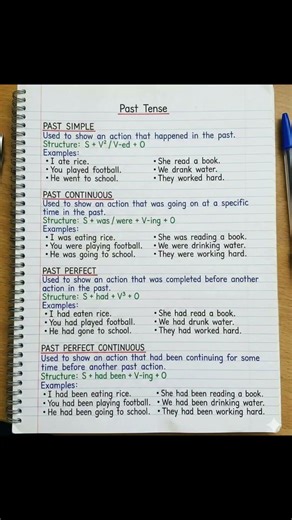 Past Tense
PAST SIMPLE
Used to show an action that happened in the past.
Structure: S + V² / V-ed + O
Examples:
• I ate rice. • She read a book.
• You played football. • We drank water.
• He went to school. • They worked hard.
PAST CONTINUOUS
Used to show an action that was going on at a specific
time in the past.
Structure: S + was / were + V-ing + O
Examples:
• I was eating rice. • She was reading a book.
• You were playing football. • We were drinking water.
• He was going to school. • They were working hard.
PAST PERFECT
Used to show an action that was completed before another
action in the past.
Structure: S + had + V³ + O
Examples:
• I had eaten rice. • She had read a book.
• You had played football. • We had drunk water.
• He had gone to school. • They had worked hard.
PAST PERFECT CONTINUOUS
Used to show an action that had been continuing for some
time before another past action.
Structure: S + had been + V-ing + O
Examples:
• I had been eating rice. • She had been reading a book.
• You had been playing football. • We had been drinking water.
• He had been going to school. • They had been working hard.